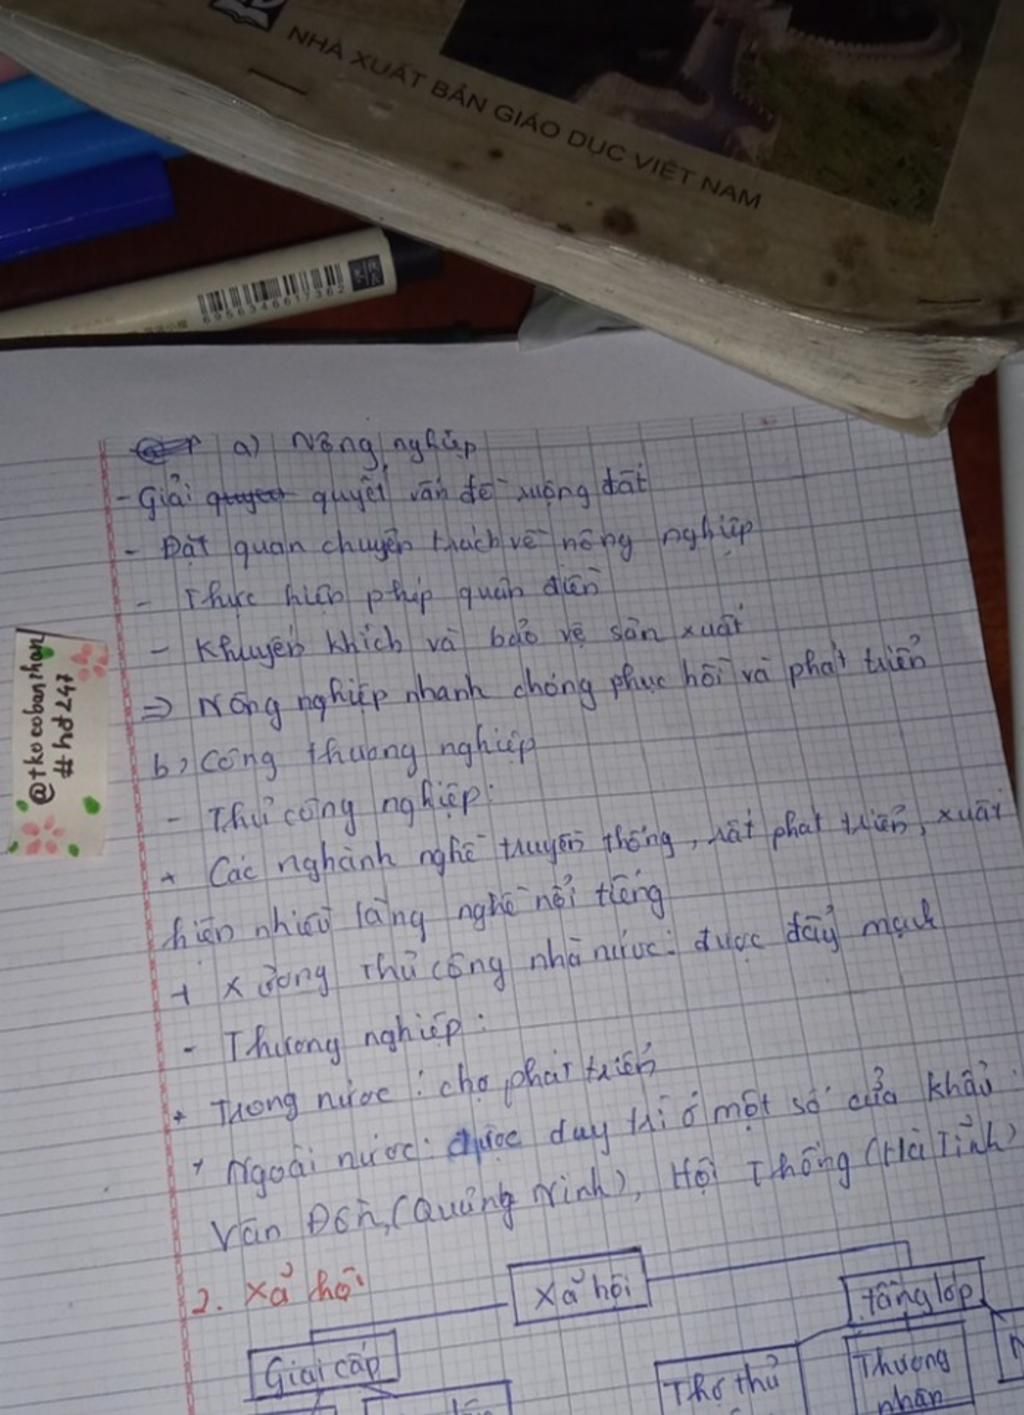 NHÀ XUẤT BẢN GIÁO DỤC VIỆT NAM
6956346617362
@tkocobanthan
#hd247
a) Nông nghiệp
- Giải quyết vấn đề ruộng đất
- Đặt quan chuyên trách về nông nghiệp
- Thực hiện phép quân điền
- Khuyến khích và bảo vệ sản xuất
=> Nông nghiệp nhanh chóng phục hồi và phát triển
b, Công thương nghiệp
- Thủ công nghiệp:
+ Các nghành nghề truyền thống, rất phát triển, xuất
hiện nhiều làng nghề nổi tiếng
+ Xưởng thủ công nhà nước: được đẩy mạnh
- Thương nghiệp:
+ Trong nước: chợ phát triển
+ Ngoài nước: được duy trì ở một số cửa khẩu:
Vân Đồn, (Quảng Ninh), Hội Thống (Hà Tĩnh)
2. Xả hội
Xả hội
Giai cấp
tầng lớp
Thợ thủ
Thương
nhân